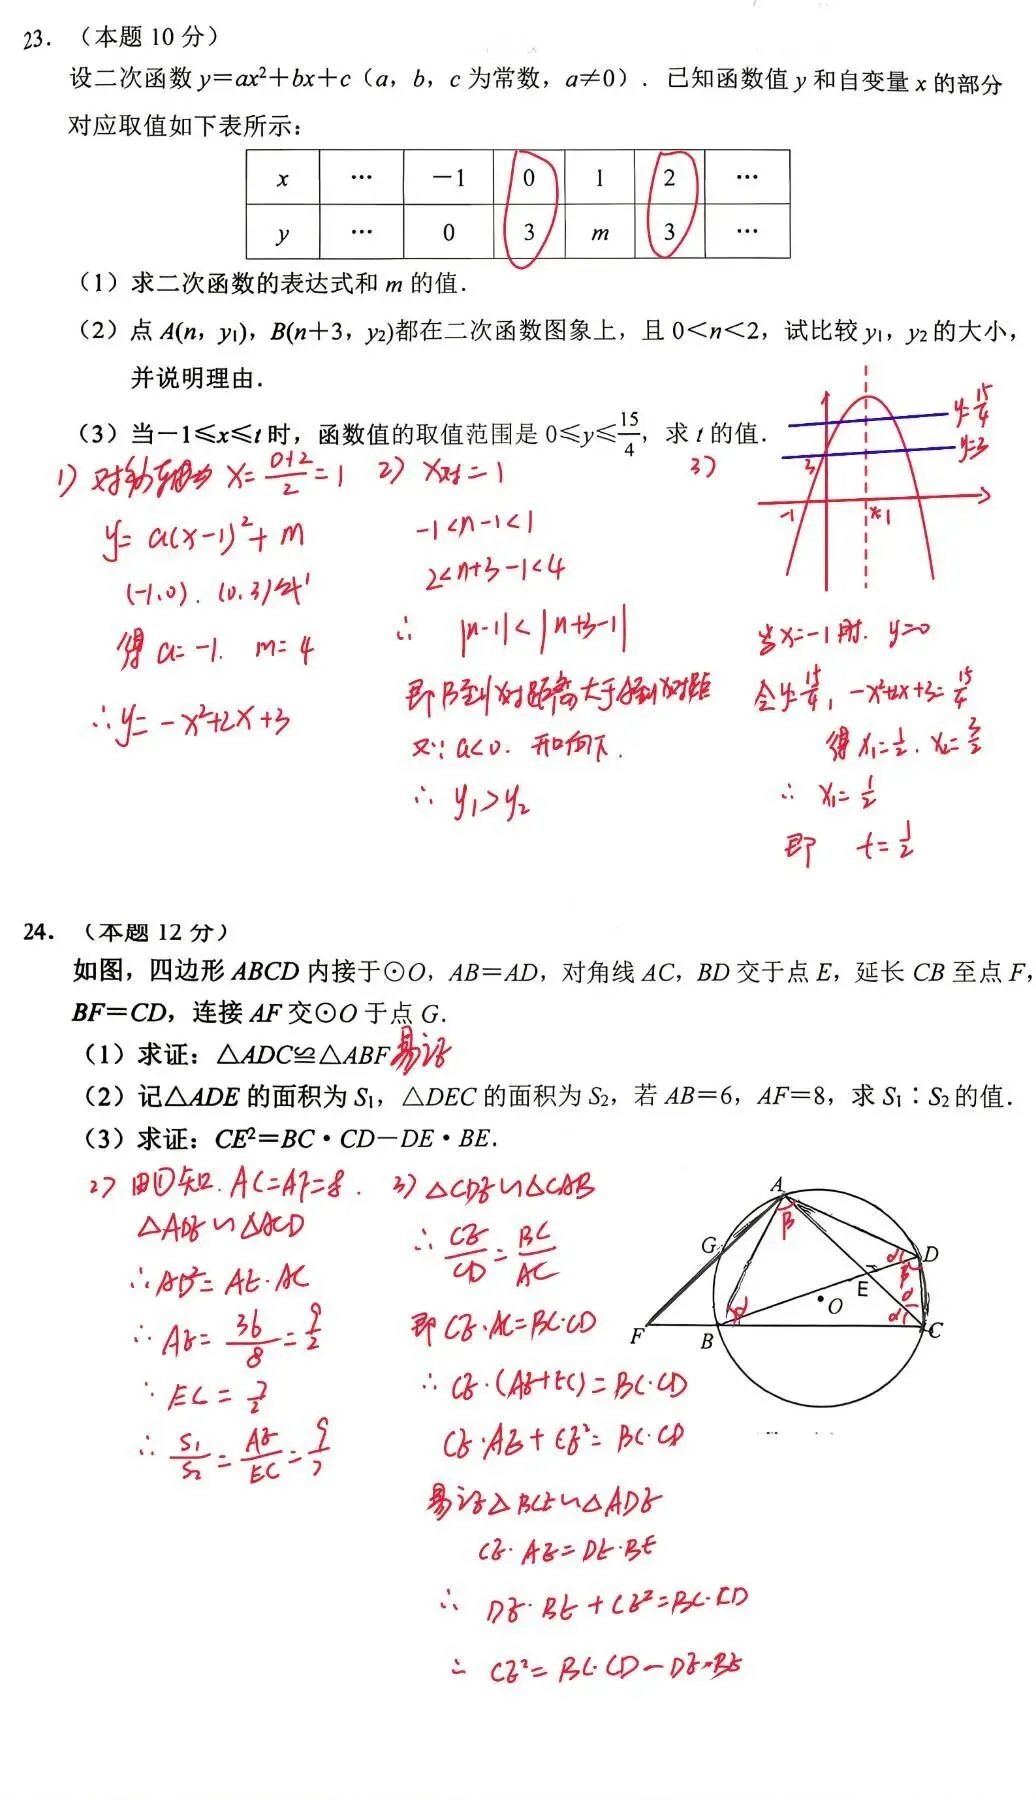 23. （本题 10 分）
设二次函数 y＝ax²＋bx＋c（a，b，c 为常数，a≠0）．已知函数值 y 和自变量 x 的部分
对应取值如下表所示：
x … －1 0 1 2 …
y … 0 3 m 3 …
（1）求二次函数的表达式和 m 的值．
（2）点 A(n，y₁)，B(n＋3，y₂)都在二次函数图象上，且 0＜n＜2，试比较 y₁，y₂ 的大小，
并说明理由．
（3）当－1≤x≤t 时，函数值的取值范围是 0≤y≤15/4，求 t 的值．
1) 对称轴为 x=(0+2)/2=1
y=a(x-1)²+m
(-1,0). (0,3)代入
得 a=-1. m=4
∴y=-x²+2x+3
2) x对=1
-1<n-1<1
2<n+3-1<4
∴ |n-1|<|n+3-1|
即B到x对距离大于A到x对距
又∵a<0. 开口向下.
∴ y₁>y₂
3)
y=15/4
y=3
3
-1
x=1
当x=-1时. y=0
令y=15/4, -x²+2x+3=15/4
得 x₁=1/2. x₂=3/2
∴ x₁=1/2
即 t=1/2
24. （本题 12 分）
如图，四边形 ABCD 内接于⊙O，AB＝AD，对角线 AC，BD 交于点 E，延长 CB 至点 F，
BF＝CD，连接 AF 交⊙O 于点 G．
（1）求证：△ADC≌△ABF 易证
（2）记△ADE 的面积为 S₁，△DEC 的面积为 S₂，若 AB＝6，AF＝8，求 S₁∶S₂ 的值．
（3）求证：CE²＝BC・CD－DE・BE．
2) 由①知. AC=AF=8.
△ADE∽△ACD
∴AD²=AE·AC
∴AE=36/8=9/2
∵EC=7/2
∴S₁/S₂=AE/EC=9/7
3) △CDE∽△CAB
∴CE/CD=BC/AC
即 CE·AC=BC·CD
∴ CE·(AE+EC)=BC·CD
CE·AE+CE²=BC·CD
易证△BCE∽△ADE
CE·AE=DE·BE
∴ DE·BE+CE²=BC·CD
∴ CE²=BC·CD-DE·BE
A
β
G
α
D
β
E
O
α
α
F
B
C